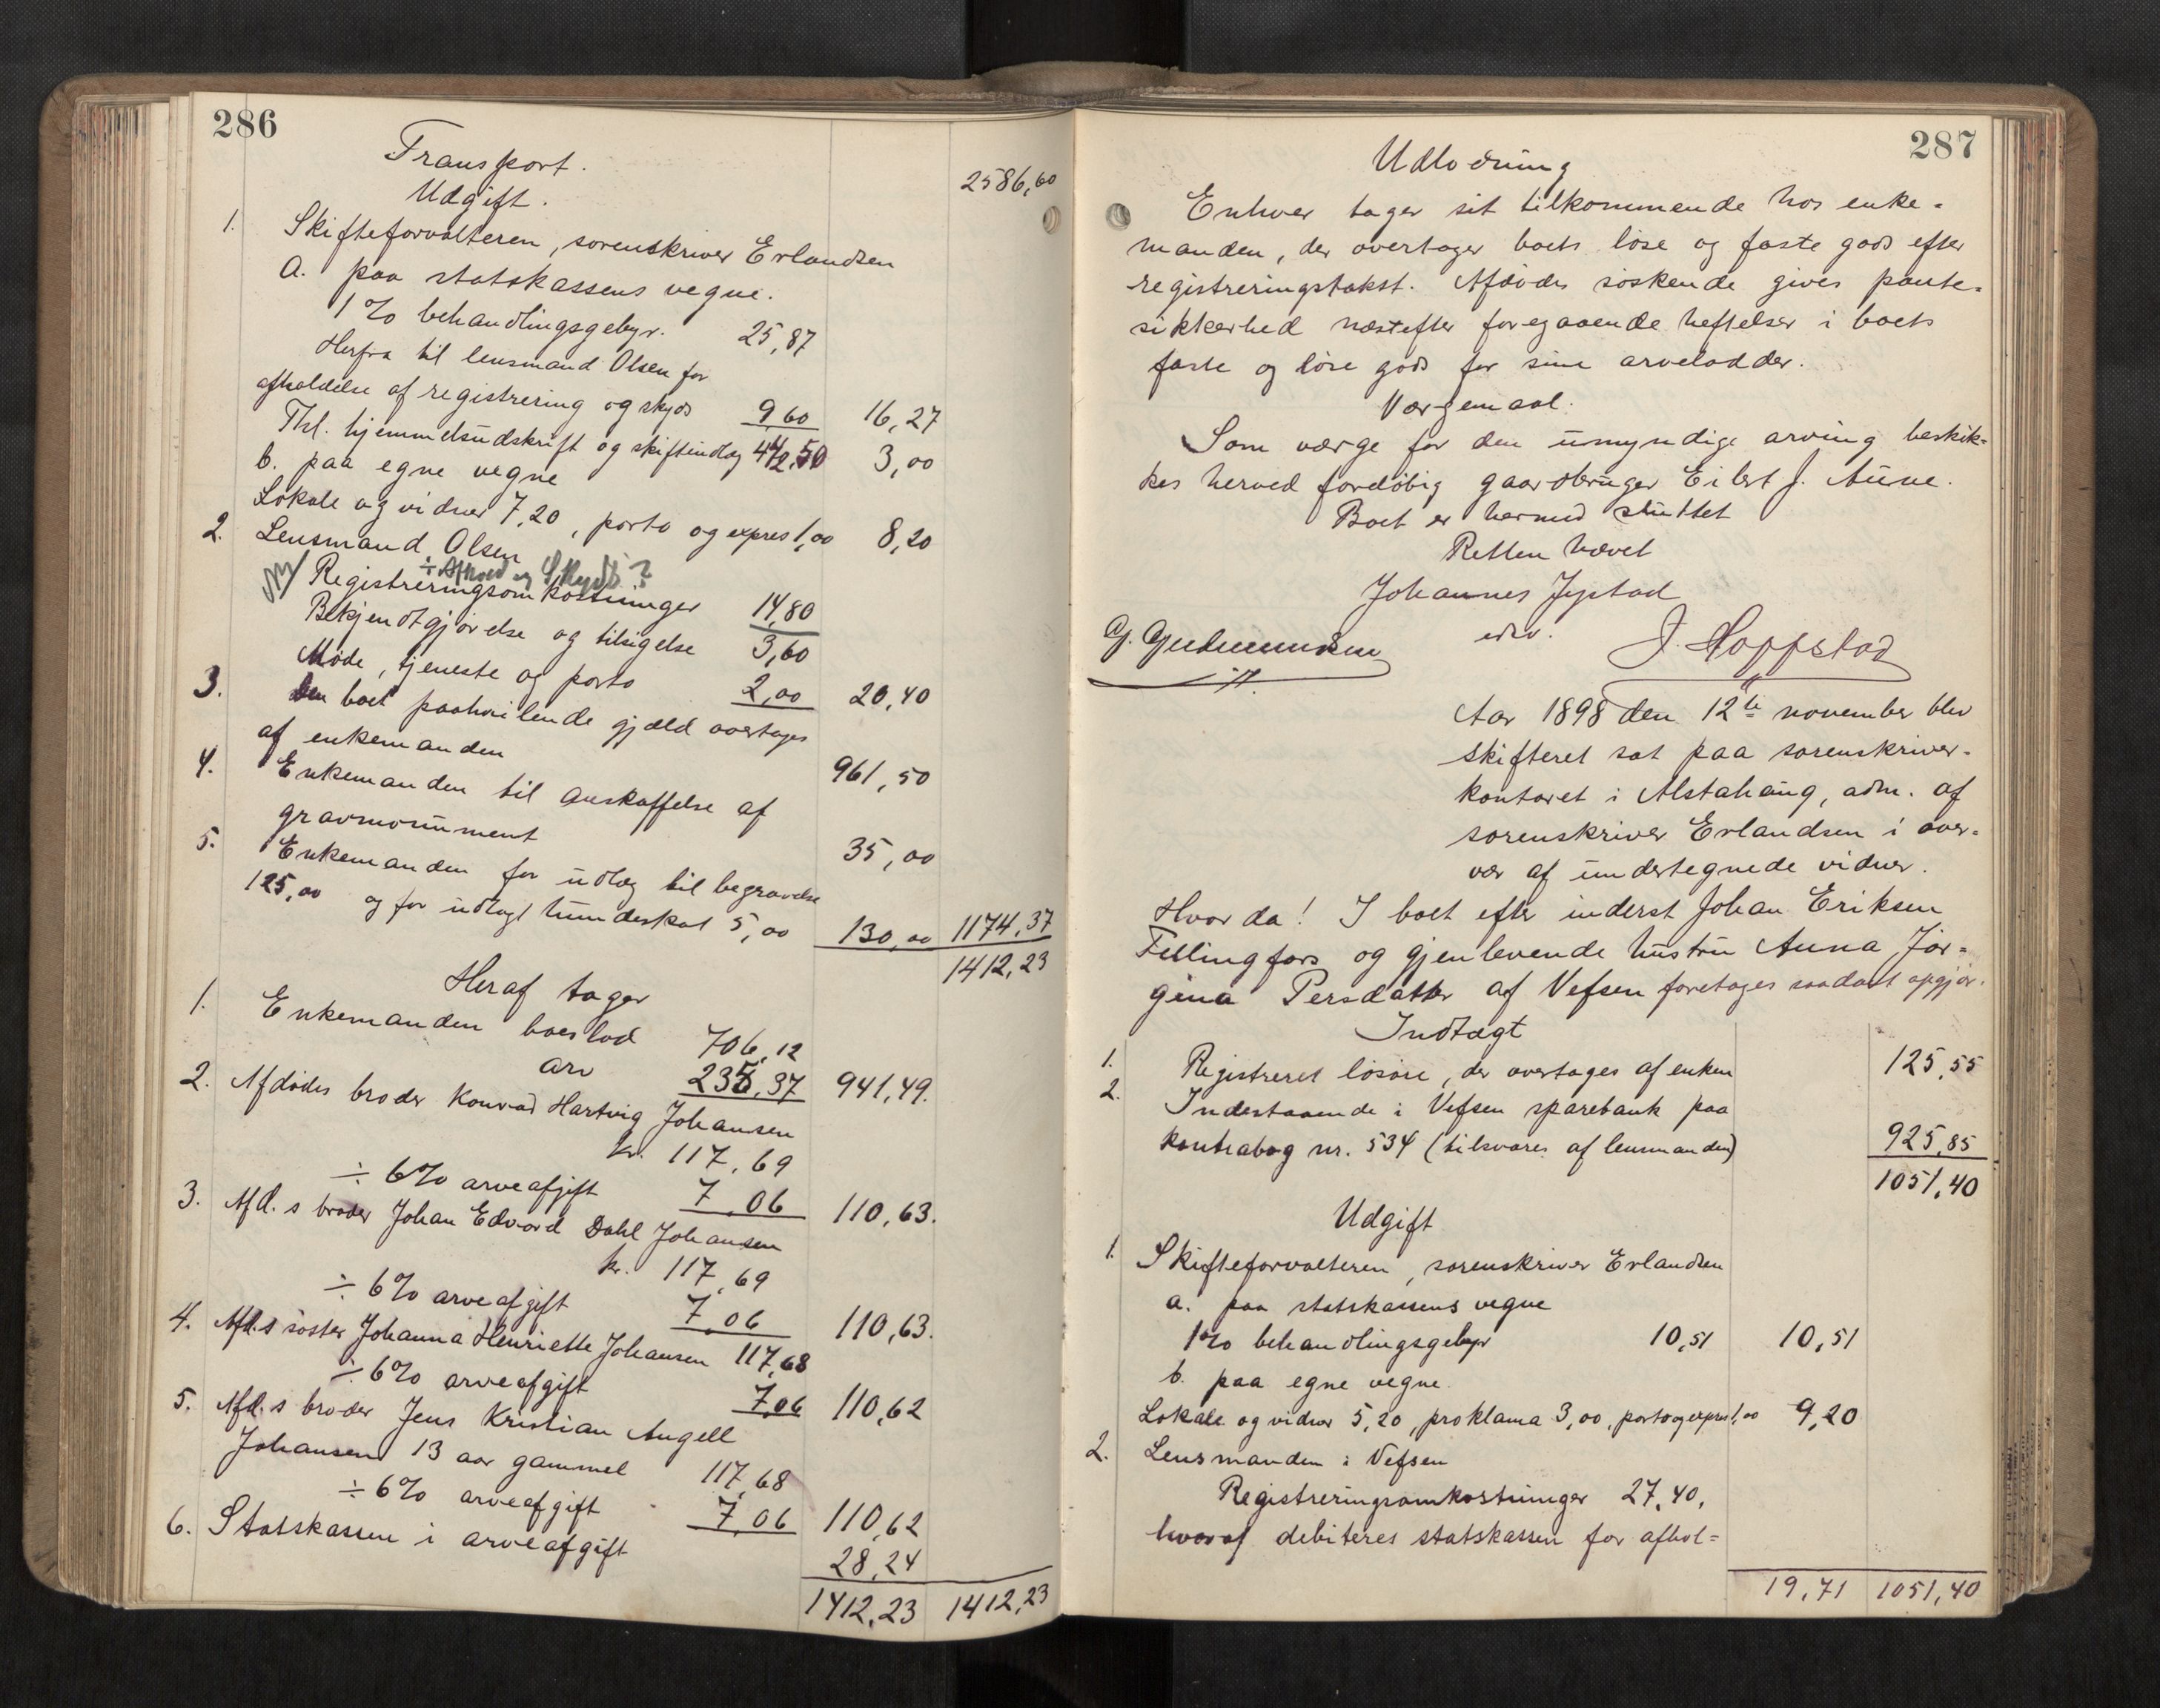 286
Transport. 2586,60
Udgift.
1. Skifteforvalteren, sorenskriver Erlandsen
a. paa statskassens vegne.
1% behandlingsgebyr. 25,87
Herfra til lensmand Olsen for
afholdelse af registrering og skyds 9,60 16,27
Thl. hjemmelsudskrift og skifteindlæg 3,00
b. paa egne vegne
Lokale og vidner 7,20, porto og expres 1,00 8,20
2. Lensmand Olsen
÷ Afhold og Skyds?
Registreringsomkostninger 14,80
Bekjendtgjørelse og tilsigelse 3,60
Møde, tjeneste og porto 2,00 20,40
3. Den boet paahvilende gjæld overtages
af enkemanden 961,50
4. Enkemanden til anskaffelse af
gravmonument 35,00
5. Enkemanden for udlæg til begravelse
125,00 og for udlagt hundeskat 5,00 130,00 1174,37
1412,23
Heraf tager
1. Enkemanden boeslod 706,12
arv 235,37 941,49.
2. Afdødes broder Konrad Hartvig Johansen
kr. 117,69
÷ 6% arveafgift 7,06 110,63.
3. Afd.s broder Johan Edvard Dahl Johansen
kr. 117,69
÷ 6% arveafgift 7,06 110,63.
4. Afd.s søster Johanna Henriette Johansen 117,68
÷ 6% arveafgift 7,06 110,62
5. Afd.s broder Jens Kristian Angell
Johansen 13 aar gammel 117,68
÷ 6% arveafgift 7,06 110,62
6. Statskassen i arveafgift 28,24
1412,23 1412,23
287
Udlodning
Enhver tager sit tilkommende hos enke=
manden, der overtager boets løse og faste gods efter
registreringstakst. Afdødes søskende gives pante=
sikkerhed næstefter foregaaende heftelser i boets
faste og løse gods for sine arvelodder.
Værgemaal.
Som værge for den umyndige arving beskik=
kes herved foreløbig gaardbruger Eilert J. Aune.
Boet er hermed sluttet
Retten hævet
Johannes Jystad
edsv.
G. Gudmundsen J. Hoppstad
Aar 1898 den 12te november blev
skifteret sat paa sorenskriver=
kontoret i Alstahaug, adm. af
sorenskriver Erlandsen i over=
vær af undertegnede vidner.
Hvor da! I boet efter inderst Johan Eriksen
Fellingfors og gjenlevende hustru Anna Jør=
gina Persdatter af Vefsen foretages saadant opgjør.
Indtægt
1. Registreret løsøre, der overtages af enken 125,55
2. Indestaaende i Vefsen sparebank paa
kontrabog nr. 534 (tilsvares af lensmanden) 925,85
1051,40
Udgift
1. Skifteforvalteren, sorenskriver Erlandsen
a. paa statskassens vegne
1% behandlingsgebyr 10,51 10,51
b. paa egne vegne
Lokale og vidner 5,20, proklama 3,00, porto og expres 1,00 9,20
2. Lensmanden i Vefsen
Registreringsomkostninger 27,40,
hvoraf debiteres statskassen for afhol=
19,71 1051,40